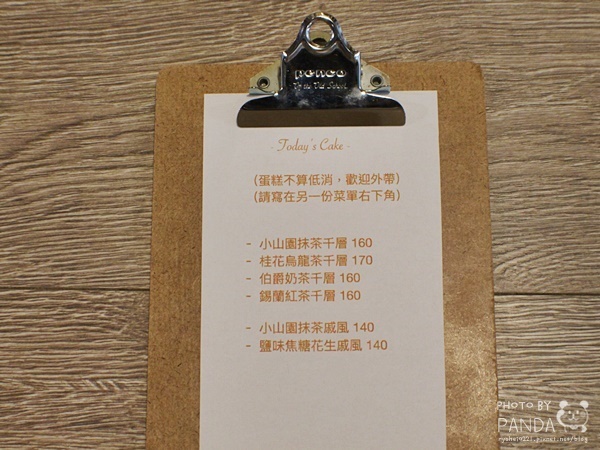 penco
- Today's Cake -
(蛋糕不算低消，歡迎外帶)
(請寫在另一份菜單右下角)
- 小山園抹茶千層 160
- 桂花烏龍茶千層 170
- 伯爵奶茶千層 160
- 錫蘭紅茶千層 160
- 小山園抹茶戚風 140
- 鹽味焦糖花生戚風 140
PHOTO BY
PANDA